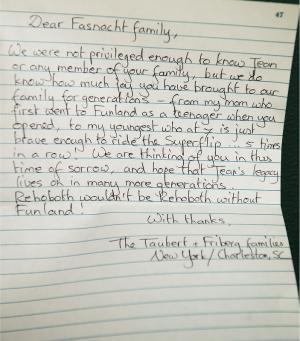 47
Dear Fasnacht family,
We were not privileged enough to know Jean
or any member of your family, but we do
know how much joy you have brought to our
family for generations - from my mom who
first went to Funland as a teenager when you
opened, to my youngest who at 7 is just
brave enough to ride the Superflip ... 5 times
in a row! We are thinking of you in this
time of sorrow, and hope that Jean's legacy
lives on in many more generations.
Rehoboth wouldn't be Rehoboth without
Funland!
With thanks,
The Taubert + Friberg families
New York / Charleston, SC